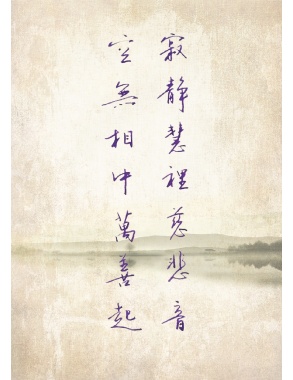 寂靜慧裡慈悲音
空無相中萬善起